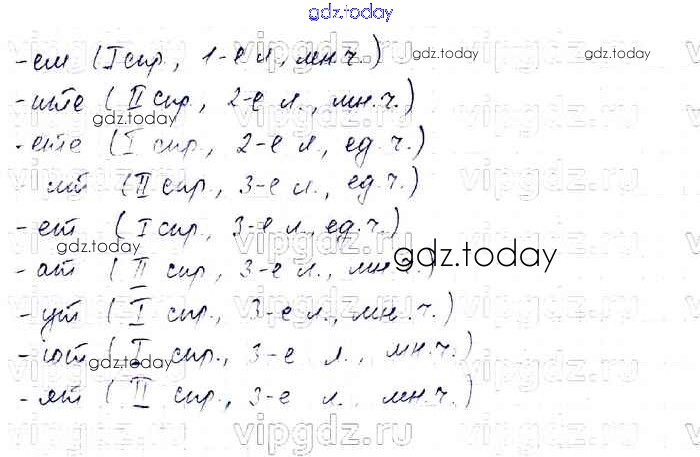 gdz.today
-ем (I спр., 1-е л., мн.ч.)
gdz.today
-ите (II спр., 2-е л., мн.ч.)
gdz.today
-ете (I спр., 2-е л., ед.ч.)
ит (II спр., 3-е л., ед.ч.)
-ет (I спр., 3-е л., ед.ч.)
gdz.today
-ат (II спр., 3-е л., мн.ч.)
gdz.today
-ут (I спр., 3-е л., мн.ч.)
-ют (I спр., 3-е л., мн.ч.)
gdz.today
-ят (II спр., 3-е л., мн.ч.)
vipgdz.ru